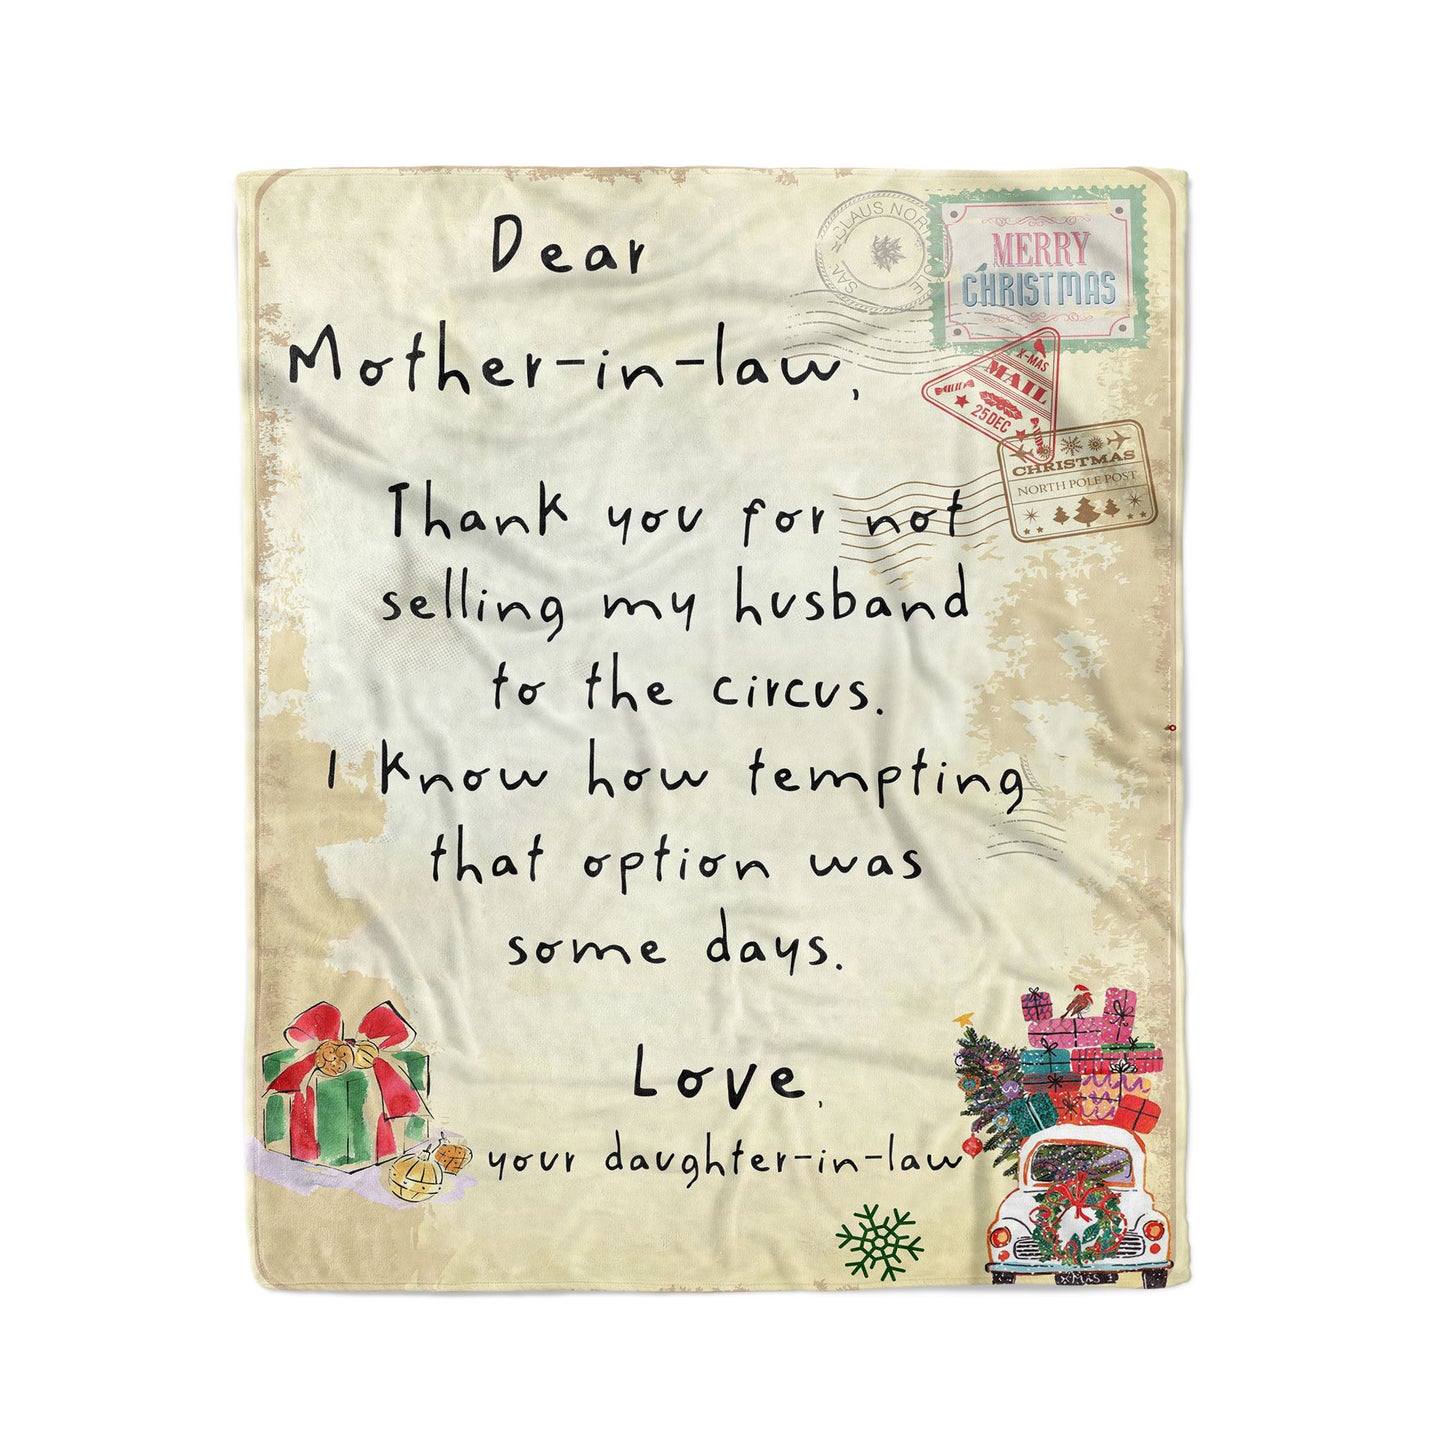 Dear
Mother-in-law,
Thank you for not
selling my husband
to the circus.
I know how tempting
that option was
some days.
Love,
your daughter-in-law
MERRY
CHRISTMAS
X-MAS
MAIL
25DEC
CHRISTMAS
NORTH POLE POST
XMAS